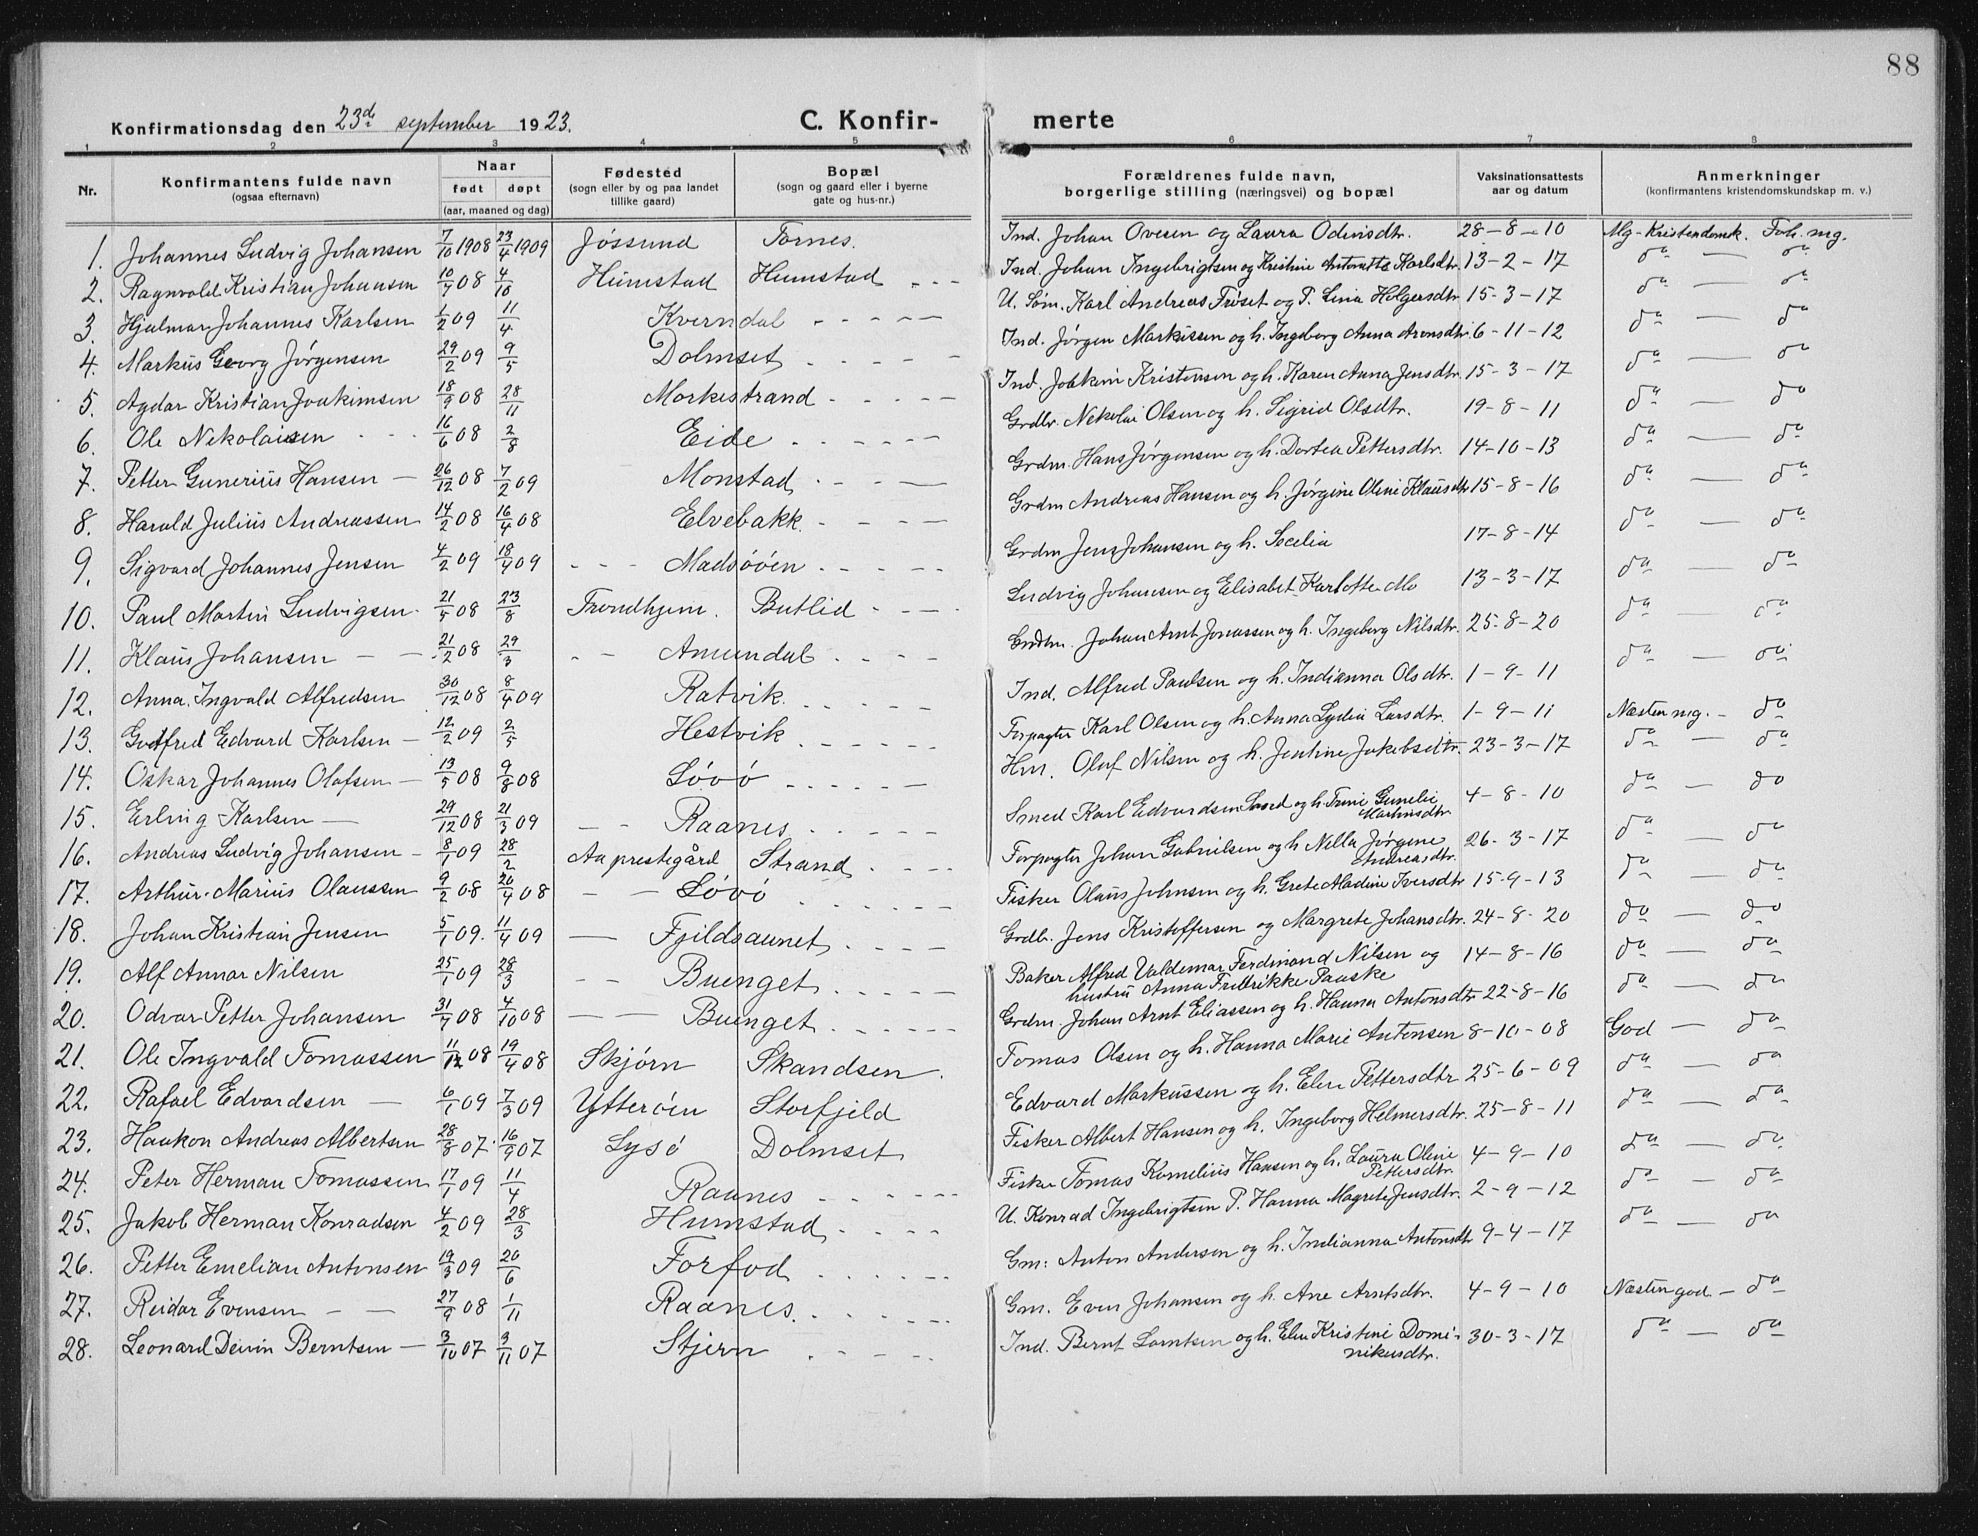 88
Konfirmationsdag den 23d september 1923.
C. Konfir-merte
1 2 3 4 5 6 7 8
Nr.
Konfirmantens fulde navn
(ogsaa efternavn)
Naar
født døpt
(aar, maaned og dag)
Fødested
(sogn eller by og paa landet
tillike gaard)
Bopæl
(sogn og gaard eller i byerne
gate og hus-nr.)
Forældrenes fulde navn,
borgerlige stilling (næringsvei) og bopæl
Vaksinationsattests
aar og datum
Anmerkninger
(konfirmantens kristendomskundskap m. v.)
1. Johannes Ludvig Johansen 7/10 1908 23/4 1909 Jøssund Tornes. Ind. Johan Ovesen og Laura Odinsdtr. 28-8-10 Mg. Kristendomsk. Foh. mg.
2. Ragnvald Kristian Johansen 10/7 08 4/10 Humstad Humstad - - - Ind. Johan Ingebrigtsen og Kristine Antonette Karlsdtr. 13-2-17 da — da
3. Hjalmar Johannes Karlsen 1/2 09 11/4 Kverndal - - - - U. Søm. Karl Andreas Frøset og P. Lina Holgersdtr. 15-3-17 da — da
4. Markus Georg Jørgensen 29/2 09 9/5 Dolmset - - - - Ind. Jørgen Markussen og h. Ingeborg Anna Aronsdtr. 6-11-12 da — da
5. Agdar Kristian Joakimsen 18/9 08 28/11 Morkestrand - - - - Ind. Joakim Kristensen og h. Karen Anna Jensdtr. 15-3-17 da — da
6. Ole Nekolaisen 16/6 08 2/8 Eide - - - - Grdbr. Nekolai Olsen og h. Sigrid Olsdtr. 19-8-11 da — do
7. Petter Gunerius Hansen — 26/12 08 7/2 09 Monstad - - - Grdm. Hans Jørgensen og h. Dortea Pettersdtr. 14-10-13 da — da
8. Harald Julius Andreassen 14/2 08 16/4 08 Elvebakk - - - Grdm Andreas Hansen og h. Jørgine Oline Klausdtr 15-8-16 da — da
9. Sigvard Johannes Jensen 4/2 09 18/4 09 - - - Madsøøen - - - - Grdm Jens Johansen og h. Secelia 17-8-14 da — da
10. Paul Martin Ludvigsen. 21/5 08 23/8 Trondhjem. Butlid - - - Ludvig Johansen og Elisabet Karlotte Mo 13-3-17 da — da
11. Klaus Johansen — — 21/2 08 29/3 - - Amundal - - - - Grdbm. Johan Arnt Jonassen og h. Ingeborg Nilsdtr. 25-8-20 da — da
12. Anna. Ingvald Alfredsen 30/12 08 8/4 09 Ratvik. - - - - Ind. Alfred Paulsen og h. Indianna Olsdtr. 1-9-11 da — da
13. Gotfred Edvard Karlsen — 12/2 09 2/5 Hestvik - - - - Forpagter Karl Olsen og h. Anna Lydia Larsdtr. 1-9-11 Næsten mg. - da
14. Oskar Johannes Olafsen — 13/5 08 9/8 08 Løvø - - - - Hm. Oluf Nilsen og h. Jentine Jakobsdtr. 23-3-17 da — da
15. Erling Karlsen — 29/12 08 21/3 09 - - Raanes - - - - Smed Karl Edvardsen og h. Trine Gunelie
Martinsdtr. 4-8-10 da — do
16. Andreas Ludvig Johansen — 8/1 09 28/2 Aa prestegård Strand - - - Forpagter Johan Gabrielsen og h Nella Jørgene
Andreasdtr. 26-3-17 da — da
17. Arthur Marius Olaussen 9/2 08 20/4 08 - - Løvø - - - - Fisker Olaus Johnsen og h. Grete Madine Iversdtr 15-9-13 da — da
18. Johan Kristian Jensen 5/1 09. 11/4 09 — Fjeldsaunet - - - - Grdb. Jens Kristeffersen og Margrete Johansdtr. 24-8-20 da — do
19. Alf Annar Nilsen 25/1 09 28/3 - - Buenget - - - - Baker Alfred Valdemar Ferdinand Nilsen og
hustru Anna Fredrikke Paaske 14-8-16 da — da
20. Odvar Petter Johansen 31/7 08 4/10 08 — — Buenget - - - - Grdm. Johan Arnt Eliassen og h. Hanna Antonsdtr 22-8-16 da — da
21. Ole Ingvald Tomassen 11/12 08 19/4 08 Skjørn Skandsen. Tomas Olsen og h. Hanna Marie Antonsen 8-10-08 God — da
22. Rafael Edvardsen — 6/1 09 7/3 09 Ytterøen Storfjeld Edvard Markussen og h. Elen Pettersdtr 25-6-09 da — da
23. Haakon Andreas Albertsen 28/8 07 16/9 07 Lysø Dolmset Fisker Albert Hansen og h. Ingeborg Helmersdtr. 25-8-11 da — da
24. Peter Herman Tomassen 17/1 09 11/4 Raanes - - - - Fisker Tomas Kornelius Hansen og h. Laura Oline
Pettersdtr. 4-9-10 da — da
25. Jakob Herman Konradsen 4/2 09 28/3 Humstad - - - - U. Konrad Ingebrigtsen P. Hanna Magrete Jensdtr. 2-9-12 da — da
26. Petter Emelian Antonsen 19/3 09 20/6 Forfod - - - - Gm: Anton Andersen og h. Indianna Antonsdtr 9-4-17 da — da
27. Reidar Evensen — — 27/9 08 1/11 Raanes - - - - Gm. Even Johansen og h. Ane Arntsdtr. 4-9-10 Næsten god. - da
28. Leonard Berntsen — 3/10 07 3/11 07 Stjern - - - - Ind. Bernt Lorntsen og h. Elen Kristine Domi-
nikusdtr. 30-3-17 da — da